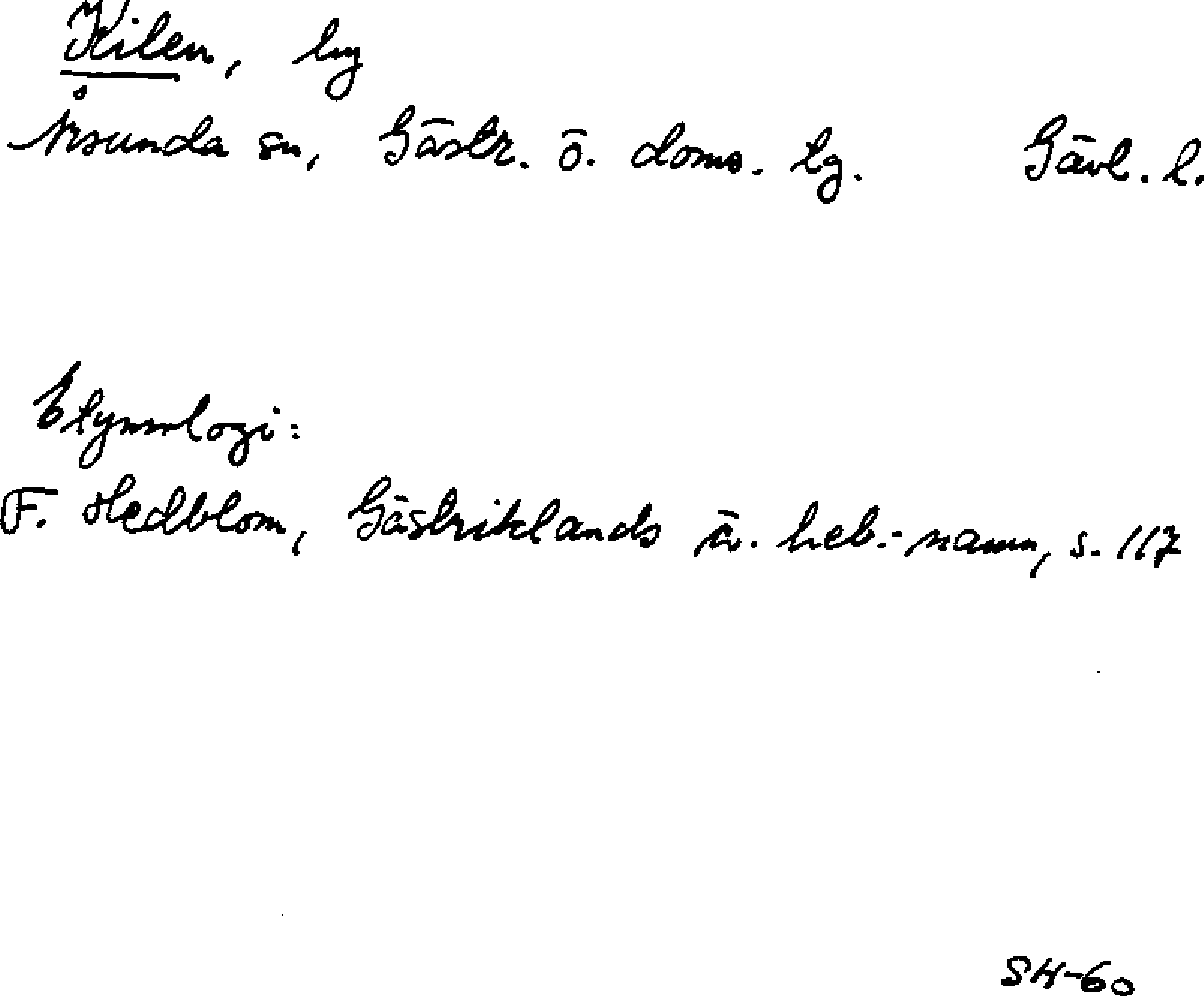 Kilen, by
Årsunda sn, Gästr. ö. doms. tg. Gävl. l.
Etymologi:
F. Hedblom, Gästriklands ä. beb.-namn, s. 117
SH-60